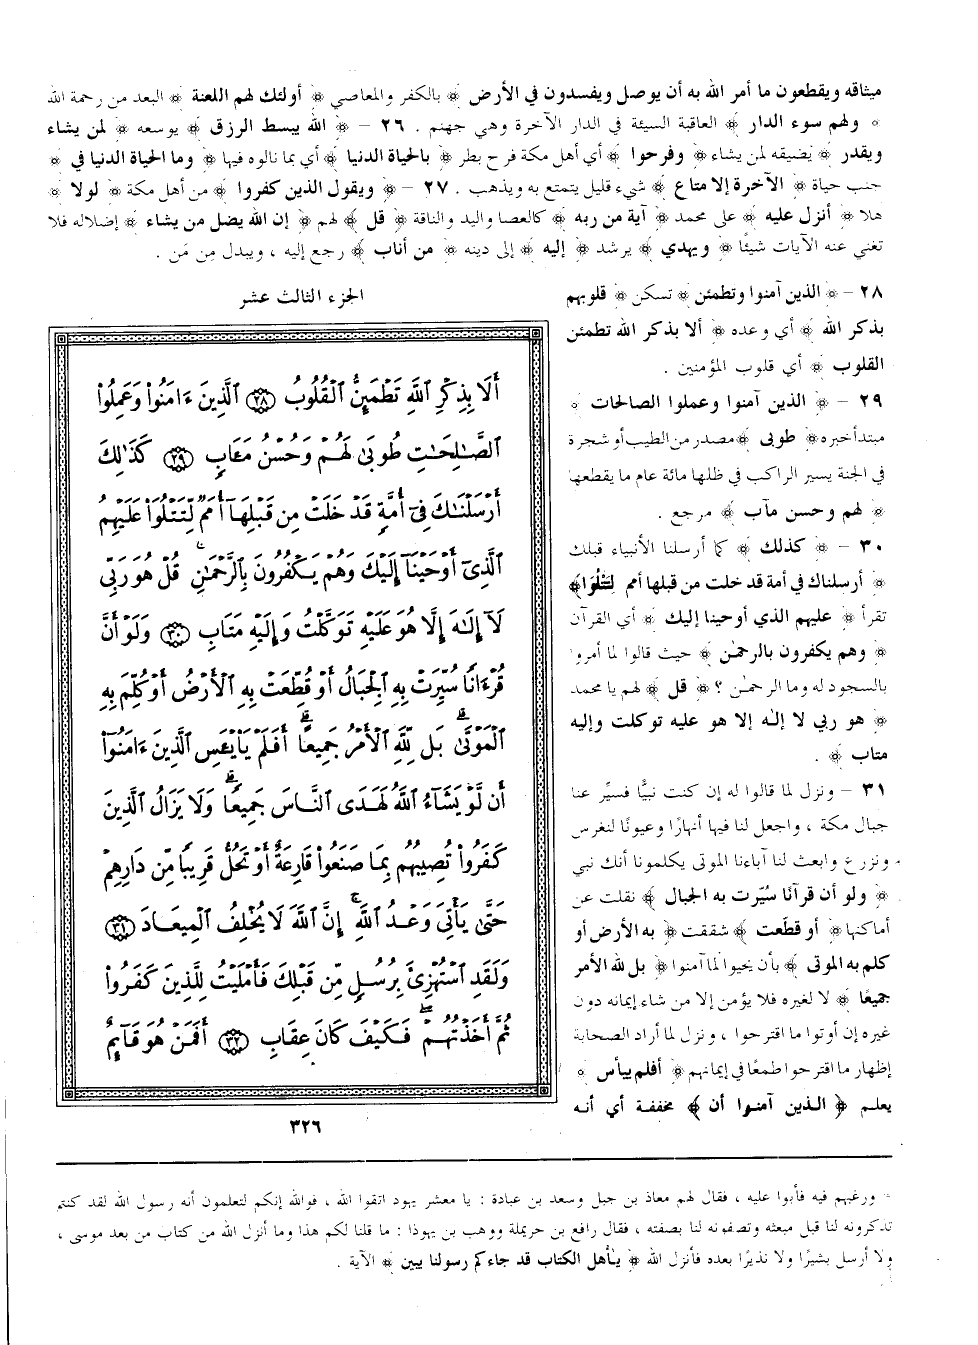 ميثاقه ويقطعون ما أمر الله به أن يوصل ويفسدون في الأرض ﴾ بالكفر والمعاصي ﴿ أولئك لهم اللعنة ﴾ البعد من رحمة الله
﴿ ولهم سوء الدار ﴾ العاقبة السيئة في الدار الآخرة وهي جهنم . ٢٦ - ﴿ الله يبسط الرزق ﴾ يوسعه ﴿ لمن يشاء
ويقدر ﴾ يضيقه لمن يشاء ﴿ وفرحوا ﴾ أي أهل مكة فرح بطر ﴿ بالحياة الدنيا ﴾ أي بما نالوه فيها ﴿ وما الحياة الدنيا في ﴾
جنب حياة ﴿ الآخرة إلا متاع ﴾ شيء قليل يتمتع به ويذهب . ٢٧ - ﴿ ويقول الذين كفروا ﴾ من أهل مكة ﴿ لولا ﴾
هلا ﴿ أنزل عليه ﴾ على محمد ﴿ آية من ربه ﴾ كالعصا واليد والناقة ﴿ قل ﴾ لهم ﴿ إن الله يضل من يشاء ﴾ إضلاله فلا
تغني عنه الآيات شيئًا ﴿ ويهدي ﴾ يرشد ﴿ إليه ﴾ إلى دينه ﴿ من أناب ﴾ رجع إليه ، ويبدل مِن مَن .
٢٨ - ﴿ الذين آمنوا وتطمئن ﴾ تسكن ﴿ قلوبهم
بذكر الله ﴾ أي وعده ﴿ ألا بذكر الله تطمئن
القلوب ﴾ أي قلوب المؤمنين .
٢٩ - ﴿ الذين آمنوا وعملوا الصالحات ﴾
مبتدأ خبره ﴿ طوبى ﴾ مصدر من الطيب أو شجرة
في الجنة يسير الراكب في ظلها مائة عام ما يقطعها
﴿ لهم وحسن مآب ﴾ مرجع .
٣٠ - ﴿ كذلك ﴾ كما أرسلنا الأنبياء قبلك
﴿ أرسلناك في أمة قد خلت من قبلها أمم لِتَتْلُوَا ﴾
تقرأ ﴿ عليهم الذي أوحينا إليك ﴾ أي القرآن
﴿ وهم يكفرون بالرحمٰن ﴾ حيث قالوا لما أمروا
بالسجود له وما الرحمٰن ؟ ﴿ قل ﴾ لهم يا محمد
﴿ هو ربي لا إلٰه إلا هو عليه توكلت وإليه
متاب ﴾ .
٣١ - ونزل لما قالوا له إن كنت نبيًّا فسيِّر عنا
جبال مكة ، واجعل لنا فيها أنهارًا وعيونًا لنغرس
ونزرع وابعث لنا آباءنا الموتى يكلمونا أنك نبي
﴿ ولو أن قرآنًا سُيّرت به الجبال ﴾ نقلت عن
أماكنها ﴿ أو قطّعت ﴾ شققت ﴿ به الأرض أو
كلم به الموتى ﴾ بأن يحيوا لما آمنوا ﴿ بل لله الأمر
جميعًا ﴾ لا لغيره فلا يؤمن إلا من شاء إيمانه دون
غيره إن أوتوا ما اقترحوا ، ونزل لما أراد الصحابة
إظهار ما اقترحوا طمعًا في إيمانهم ﴿ أفلم ييأس ﴾
يعلم ﴿ الذين آمنوا أن ﴾ مخففة أي أنه
الجزء الثالث عشر
أَلَا بِذِكْرِ ٱللَّهِ تَطْمَئِنُّ ٱلْقُلُوبُ ٢٨ ٱلَّذِينَ ءَامَنُوا۟ وَعَمِلُوا۟
ٱلصَّـٰلِحَـٰتِ طُوبَىٰ لَهُمْ وَحُسْنُ مَـَٔابٍ ٢٩ كَذَٰلِكَ
أَرْسَلْنَـٰكَ فِىٓ أُمَّةٍ قَدْ خَلَتْ مِن قَبْلِهَآ أُمَمٌ لِّتَتْلُوَا۟ عَلَيْهِمُ
ٱلَّذِىٓ أَوْحَيْنَآ إِلَيْكَ وَهُمْ يَكْفُرُونَ بِٱلرَّحْمَـٰنِ ۚ قُلْ هُوَ رَبِّى
لَآ إِلَـٰهَ إِلَّا هُوَ عَلَيْهِ تَوَكَّلْتُ وَإِلَيْهِ مَتَابِ ٣٠ وَلَوْ أَنَّ
قُرْءَانًا سُيِّرَتْ بِهِ ٱلْجِبَالُ أَوْ قُطِّعَتْ بِهِ ٱلْأَرْضُ أَوْ كُلِّمَ بِهِ
ٱلْمَوْتَىٰ ۗ بَل لِّلَّهِ ٱلْأَمْرُ جَمِيعًا ۗ أَفَلَمْ يَا۟يْـَٔسِ ٱلَّذِينَ ءَامَنُوٓا۟
أَن لَّوْ يَشَآءُ ٱللَّهُ لَهَدَى ٱلنَّاسَ جَمِيعًا ۗ وَلَا يَزَالُ ٱلَّذِينَ
كَفَرُوا۟ تُصِيبُهُم بِمَا صَنَعُوا۟ قَارِعَةٌ أَوْ تَحُلُّ قَرِيبًا مِّن دَارِهِمْ
حَتَّىٰ يَأْتِىَ وَعْدُ ٱللَّهِ ۚ إِنَّ ٱللَّهَ لَا يُخْلِفُ ٱلْمِيعَادَ ٣١
وَلَقَدِ ٱسْتُهْزِئَ بِرُسُلٍ مِّن قَبْلِكَ فَأَمْلَيْتُ لِلَّذِينَ كَفَرُوا۟
ثُمَّ أَخَذْتُهُمْ ۖ فَكَيْفَ كَانَ عِقَابِ ٣٢ أَفَمَنْ هُوَ قَآئِمٌ
٣٢٦
= ورغبهم فيه فأبوا عليه ، فقال لهم معاذ بن جبل وسعد بن عبادة : يا معشر يهود اتقوا الله ، فوالله إنكم لتعلمون أنه رسول الله لقد كنتم
تذكرونه لنا قبل مبعثه وتصفونه لنا بصفته ، فقال رافع بن حريملة ووهب بن يهوذا : ما قلنا لكم هذا وما أنزل الله من كتاب من بعد موسى ،
ولا أرسل بشيرًا ولا نذيرًا بعده فأنزل الله ﴿ يـٰأهل الكتاب قد جاءكم رسولنا يبين ﴾ الآية .